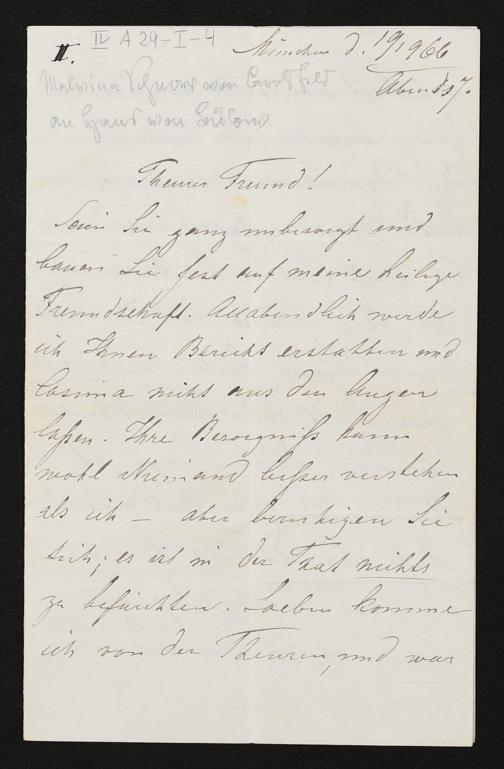 II.
II A 29-I-4
München d. 19/9 66
Abends 7.
Malwina Schnorr von Carolsfeld
an Hans von Bülow
Theurer Freund!
Seien Sie ganz unbesorgt und
bauen Sie fest auf meine heilige
Freundschaft. Allabendlich werde
ich Ihnen Bericht erstatten und
Cosima nicht aus den Augen
laßen. Ihre Besorgniß kann
wohl Niemand beßer verstehen
als ich – aber beruhigen Sie
sich; es ist in der That nichts
zu befürchten. Soeben komme
ich von der Theuren, und war